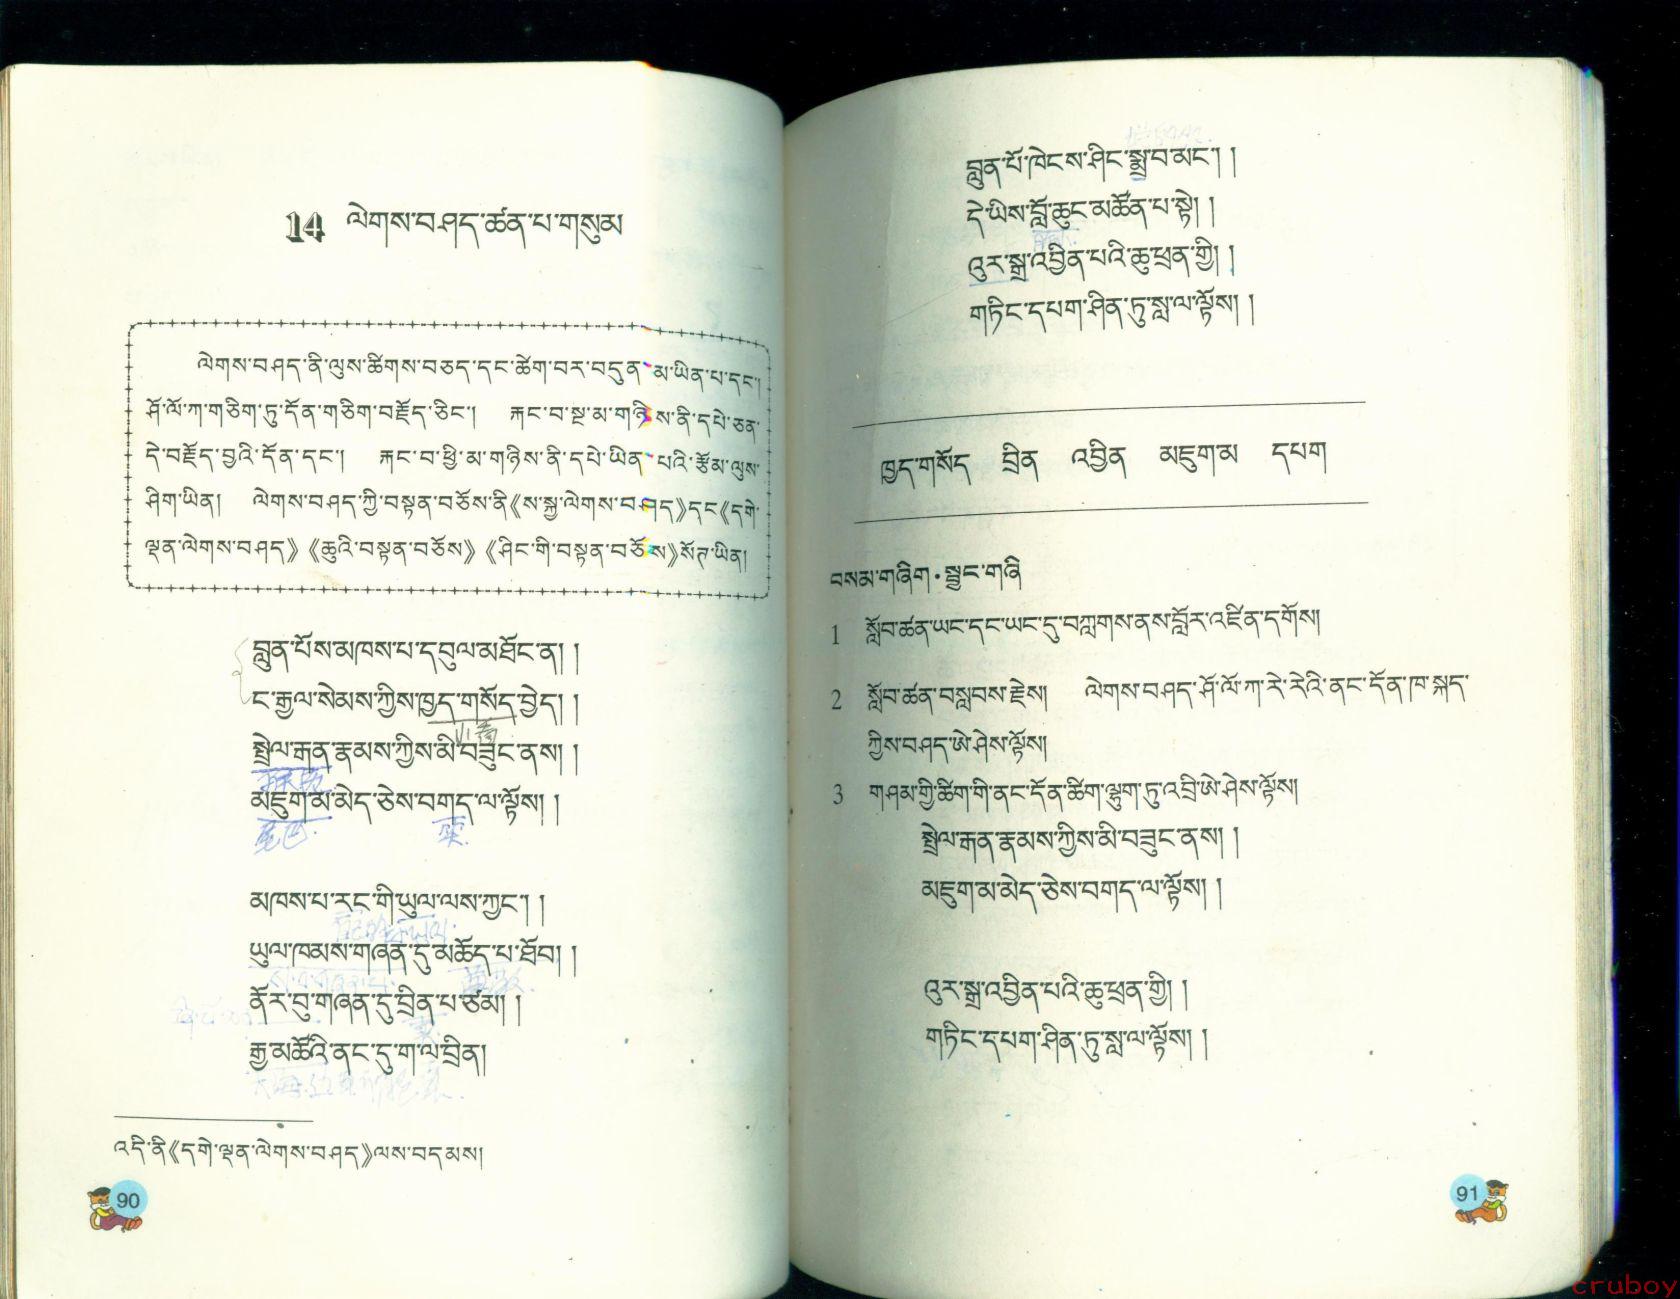 14 ལེགས་བཤད་ཚན་པ་གསུམ
ལེགས་བཤད་ནི་ལུས་ཚིགས་བཅད་དང་ཚེག་བར་བདུན་མ་ཡིན་པ་དང་།
ཤོ་ལོ་ཀ་གཅིག་ཏུ་དོན་གཅིག་བརྗོད་ཅིང་། རྐང་བ་སྔ་མ་གཉིས་ནི་དཔེ་ཅན་
དེ་བརྗོད་བྱའི་དོན་དང་། རྐང་བ་ཕྱི་མ་གཉིས་ནི་དཔེ་ཡིན་པའི་རྩོམ་ལུས་
ཤིག་ཡིན། ལེགས་བཤད་ཀྱི་བསྟན་བཅོས་ནི《ས་སྐྱ་ལེགས་བཤད》དང《དགེ་
ལྡན་ལེགས་བཤད》《ཆུའི་བསྟན་བཅོས》《ཤིང་གི་བསྟན་བཅོས》སོགས་ཡིན།
བླུན་པོས་མཁས་པ་དབུལ་མཐོང་ན། །
ང་རྒྱལ་སེམས་ཀྱིས་ཁྱད་གསོད་བྱེད། །
སྤྲེལ་རྒན་རྣམས་ཀྱིས་མི་བཟུང་ནས། །
མཇུག་མ་མེད་ཅེས་བགད་ལ་ལྟོས། །
尾巴.
笑.
མཁས་པ་རང་གི་ཡུལ་ལས་ཀྱང་། །
ཡུལ་ཁམས་གཞན་དུ་མཆོད་པ་ཐོབ། །
ནོར་བུ་གཞན་དུ་བྲིན་པ་ཙམ། །
རྒྱ་མཚོའི་ནང་དུ་ག་ལ་བྲིན།
འདི་ནི《དགེ་ལྡན་ལེགས་བཤད》ལས་བདམས།
90
བླུན་པོ་ཁེངས་ཤིང་སྨྲ་བ་མང་། །
དེ་ཡིས་བློ་ཆུང་མཚོན་པ་སྟེ། །
འུར་སྒྲ་འབྱིན་པའི་ཆུ་ཕྲན་གྱི། །
གཏིང་དཔག་ཤིན་ཏུ་སླ་ལ་ལྟོས། །
ཁྱད་གསོད བྲིན འབྱིན མཇུག་མ དཔག
བསམ་གཞིག་སྦྱང་གཞི
1 སློབ་ཚན་ཡང་དང་ཡང་དུ་བཀླགས་ནས་བློར་འཛིན་དགོས།
2 སློབ་ཚན་བསླབས་རྗེས། ལེགས་བཤད་ཤོ་ལོ་ཀ་རེ་རེའི་ནང་དོན་ཁ་སྐད་
ཀྱིས་བཤད་ཨེ་ཤེས་ལྟོས།
3 གཤམ་གྱི་ཚིག་གི་ནང་དོན་ཚིག་ལྷུག་ཏུ་འབྲི་ཨེ་ཤེས་ལྟོས།
སྤྲེལ་རྒན་རྣམས་ཀྱིས་མི་བཟུང་ནས། །
མཇུག་མ་མེད་ཅེས་བགད་ལ་ལྟོས། །
འུར་སྒྲ་འབྱིན་པའི་ཆུ་ཕྲན་གྱི། །
གཏིང་དཔག་ཤིན་ཏུ་སླ་ལ་ལྟོས། །
91
cruboy